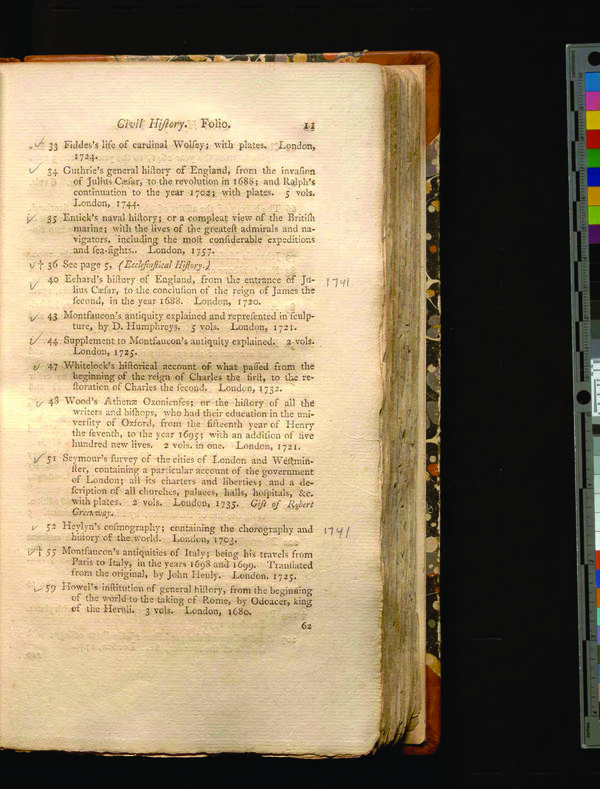 Civil Hiſtory. Folio. 11
33 Fiddes's life of cardinal Wolſey; with plates. London,
1724.
34 Guthrie's general hiſtory of England, from the invaſion
of Julius Cæſar, to the revolution in 1688; and Ralph's
continuation to the year 1702; with plates. 5 vols.
London, 1744.
35 Entick's naval hiſtory; or a compleat view of the Britiſh
marine; with the lives of the greateſt admirals and na-
vigators, including the moſt conſiderable expeditions
and ſea-fights.. London, 1757.
† 36 See page 5, (Eccleſiaſtical Hiſtory.)
40 Echard's hiſtory of England, from the entrance of Ju- 1741
lius Cæſar, to the concluſion of the reign of James the
ſecond, in the year 1688. London, 1720.
43 Montfaucon's antiquity explained and repreſented in ſculp-
ture, by D. Humphreys, 5 vols. London, 1721.
44 Supplement to Montfaucon's antiquity explained. 2 vols.
London, 1725.
47 Whitelock's hiſtorical account of what paſſed from the
beginning of the reign of Charles the firſt, to the re-
ſtoration of Charles the ſecond. London, 1732.
48 Wood's Athenæ Oxonienſes; or the hiſtory of all the
writers and biſhops, who had their education in the uni-
verſity of Oxford, from the fifteenth year of Henry
the ſeventh, to the year 1695; with an addition of five
hundred new lives. 2 vols. in one. London, 1721.
51 Seymour's ſurvey of the cities of London and Weſtmin-
ſter, containing a particular account of the government
of London; all its charters and liberties; and a de-
ſcription of all churches, palaces, halls, hoſpitals, &c.
with plates. 2 vols. London, 1735. Gift of Robert
Greenway.
52 Heylyn's coſmography; containing the chorography and 1741
hiſtory of the world. London, 1703.
† 55 Montfaucon's antiquities of Italy; being his travels from
Paris to Italy, in the years 1698 and 1699. Tranſlated
from the original, by John Henly. London. 1725.
59 Howel's inſtitution of general hiſtory, from the beginning
of the world to the taking of Rome, by Odoacer, king
of the Heruli. 3 vols. London, 1680.
62